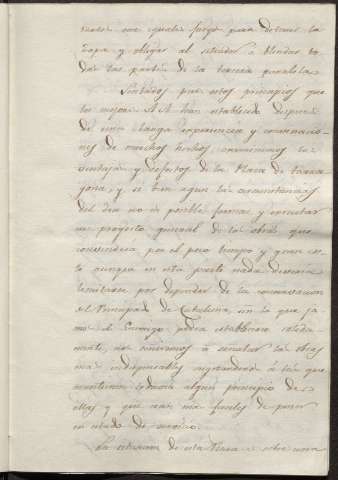 tantes con iguales fuego para detener la
Zapa y obligar al sitiador a blindar to
das las partes de la tercera paralela
Sentados pues estos principios que
los mejores A.A. han establecido despues
de una larga experiencia y comvinacio
nes de muchos hechos, examinemos la
ventaja y defectos de la Plaza de Tarra
gona, y si bien segun las circunstancias
del dia no es posible formar y executar
un proyecto general de las obras que
convendria por el poco tiempo y gran cos
to aunque en esta parte nada deviera
limitarse por depender de su conservacion
el Principado de Cataluña, en la que ja
mas el Enemigo podra establecerse solida
mente, nos ceñiremos á señalar las obras
mas indispensables sugetandonos á las que
mantienen todavia algun principio de
ellas y que son mas faciles de poner
en estado de servicio.
La situacion de esta Plaza es sobre una